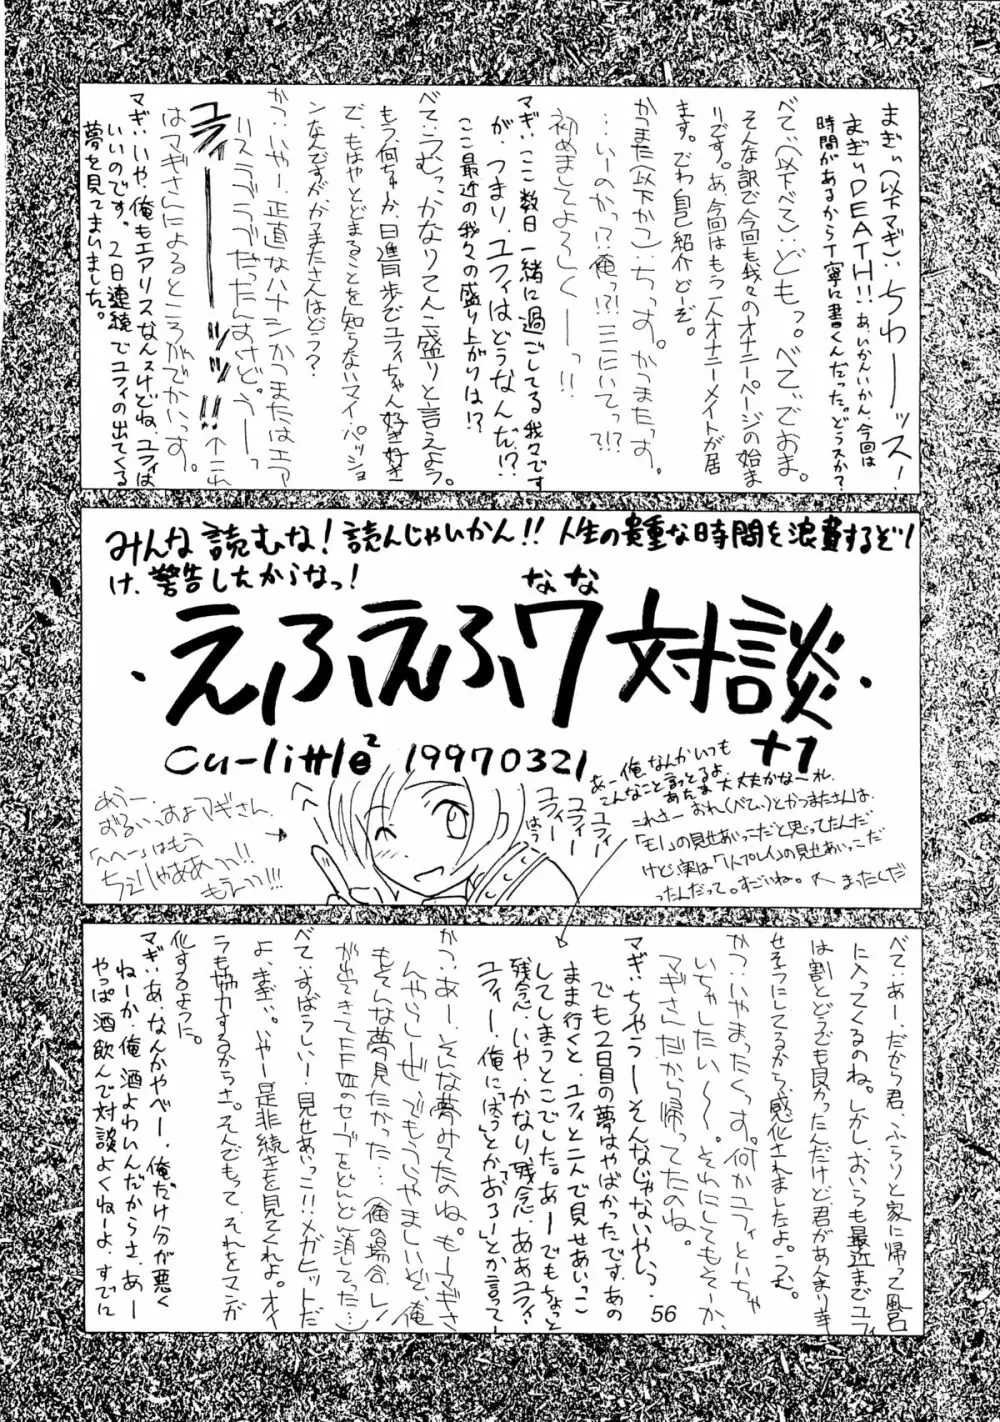 まぎぃ(以下マギ)、ちわーッス!
まぎぃDEATH!!あ、いかんいかん、今回は
時間があるから丁寧に書くんだった。どうスか?
べて、(以下べて)、どもっ。べてでおま。
そんな訳で今回も我々のオナニーページの始ま
りです。あ、今回はもう一人オナニーメイトが居
ます。でわ自己紹介どーぞ。
かつまた(以下かつ)、ちっす。かつまたっす。
…いーのかっ!?俺っ!?ここにいてっ?!?
初めましてよろしくーっ!!
マギ、ここ数日一緒に過ごしてる我々です
が、つまり、ユフィはどうなんだ!?
ここ最近の我々の盛り上がりは!?
べて、うむっ、かなりてんこ盛りと言えよう。
もう、何ちゅか、日進月歩でユフィちゃん好き好き
で、もはやとどまることを知らないマイ・パッショ
ンなんですが、かつまたさんはどう?
かつ、いやー、正直なハナシかつまたはエア
リスラブラブだったんすけど。うーっ
はマギさんによるところがでかいっす。
ユフィーーーッッ!!↑これ
マギ、いや、俺もエアリスなんスけどね、ユフィは
いいのです。2日連続でユフィの出てくる
夢を見てまいました。
みんな読むな!読んじゃいかん!!人生の貴重な時間を浪費するぞ!
け、警告したからなっ!
・えふえふ7対談・
なな
+1
Cu-little2 19970321
あうー、
おるいっすよマギさん、
「へへー」はもう
ちぇりゃああっっ!!
もえっっ!!!
へへ
ユフィー
ユフィー
ユフィー
はう
あー俺なんかいつも
こんなこと言っとるよ。
あたま大丈夫かな〜れ
これさーおれ(べて)とかつまたさんは、
「モノ」の見せあいっこだと思ってたんだ
けど実は「1人プレイ」の見せあいっこだ
ったんだって。すごいね。
べて、あー、だから君、ふらりと家に帰って風呂
に入ってくるのね。しかし、おいらも最近までユフィ
は割とどうでも良かったんだけど君があんまり幸
せそうにしてるから、感化されましたよ。うむ。
かつ、いやまったくっす。何かユフィといちゃ
いちゃしたい〜〜。それにしてもそーか、
マギさんだから帰ってたのね。
マギ、ちゃうーそんなじゃないやいっ。
でも2日目の夢はやばかったです、あの
まま行くと、ユフィと二人で見せあいっこ
してしまうとこでした。あーでもちょっと
残念、いや、かなり残念、ああユフィ、
ユフィー、俺に「はうっ」とか「おろー」とか言ってー
かつ、あー、そんな夢みてたのね。もーマギさ
んやらしっぜ。でもうらやましいけど、俺
もそんな夢見たかった…(俺の場合、レノ
が出てきてFFⅦのセーブをどんどん消してった…)
べて、すばらしいー!見せあいっこ!!メガヒットだ
よ、まぎぃ。いやー是非続きを見てくれよ。オイ
ラも協力するからさ。そんでもって、それをマンガ
化するように。
マギ、あ、なんかやべー、俺だけ分が悪く
ねーか、俺、酒よわいんだからさ、あー
やっぱ酒飲んで対談よくねーよ、すでに
56